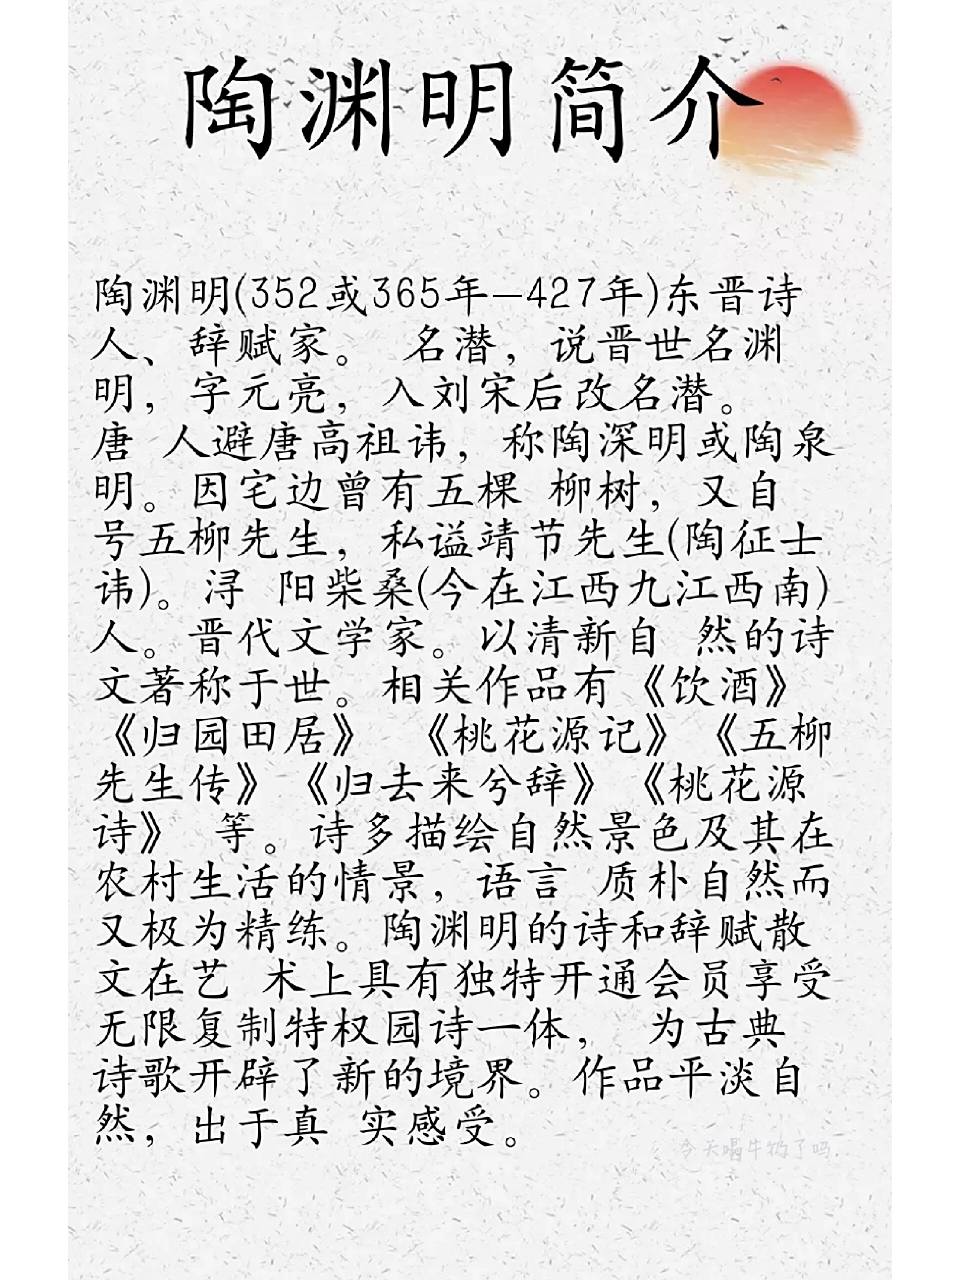 陶渊明简介
陶渊明(352或365年—427年)东晋诗
人、辞赋家。 名潜，说晋世名渊
明，字元亮，入刘宋后改名潜。
唐 人避唐高祖讳，称陶深明或陶泉
明。因宅边曾有五棵 柳树，又自
号五柳先生，私谥靖节先生(陶征士
讳)。浔 阳柴桑(今在江西九江西南)
人。晋代文学家。以清新自 然的诗
文著称于世。相关作品有《饮酒》
《归园田居》 《桃花源记》《五柳
先生传》《归去来兮辞》《桃花源
诗》 等。诗多描绘自然景色及其在
农村生活的情景，语言 质朴自然而
又极为精练。陶渊明的诗和辞赋散
文在艺 术上具有独特开通会员享受
无限复制特权园诗一体， 为古典
诗歌开辟了新的境界。作品平淡自
然，出于真 实感受。
今天喝牛奶了吗